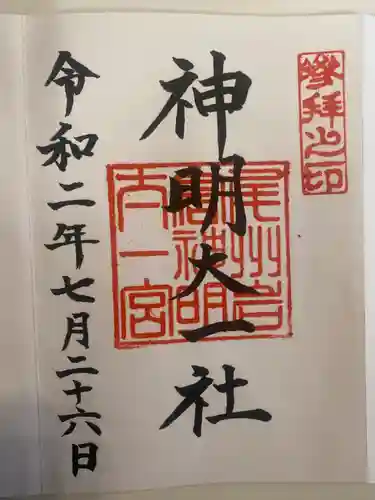 参拝之印
神明大一社
尾州岩
倉神明
大一宮
令和二年七月二十六日